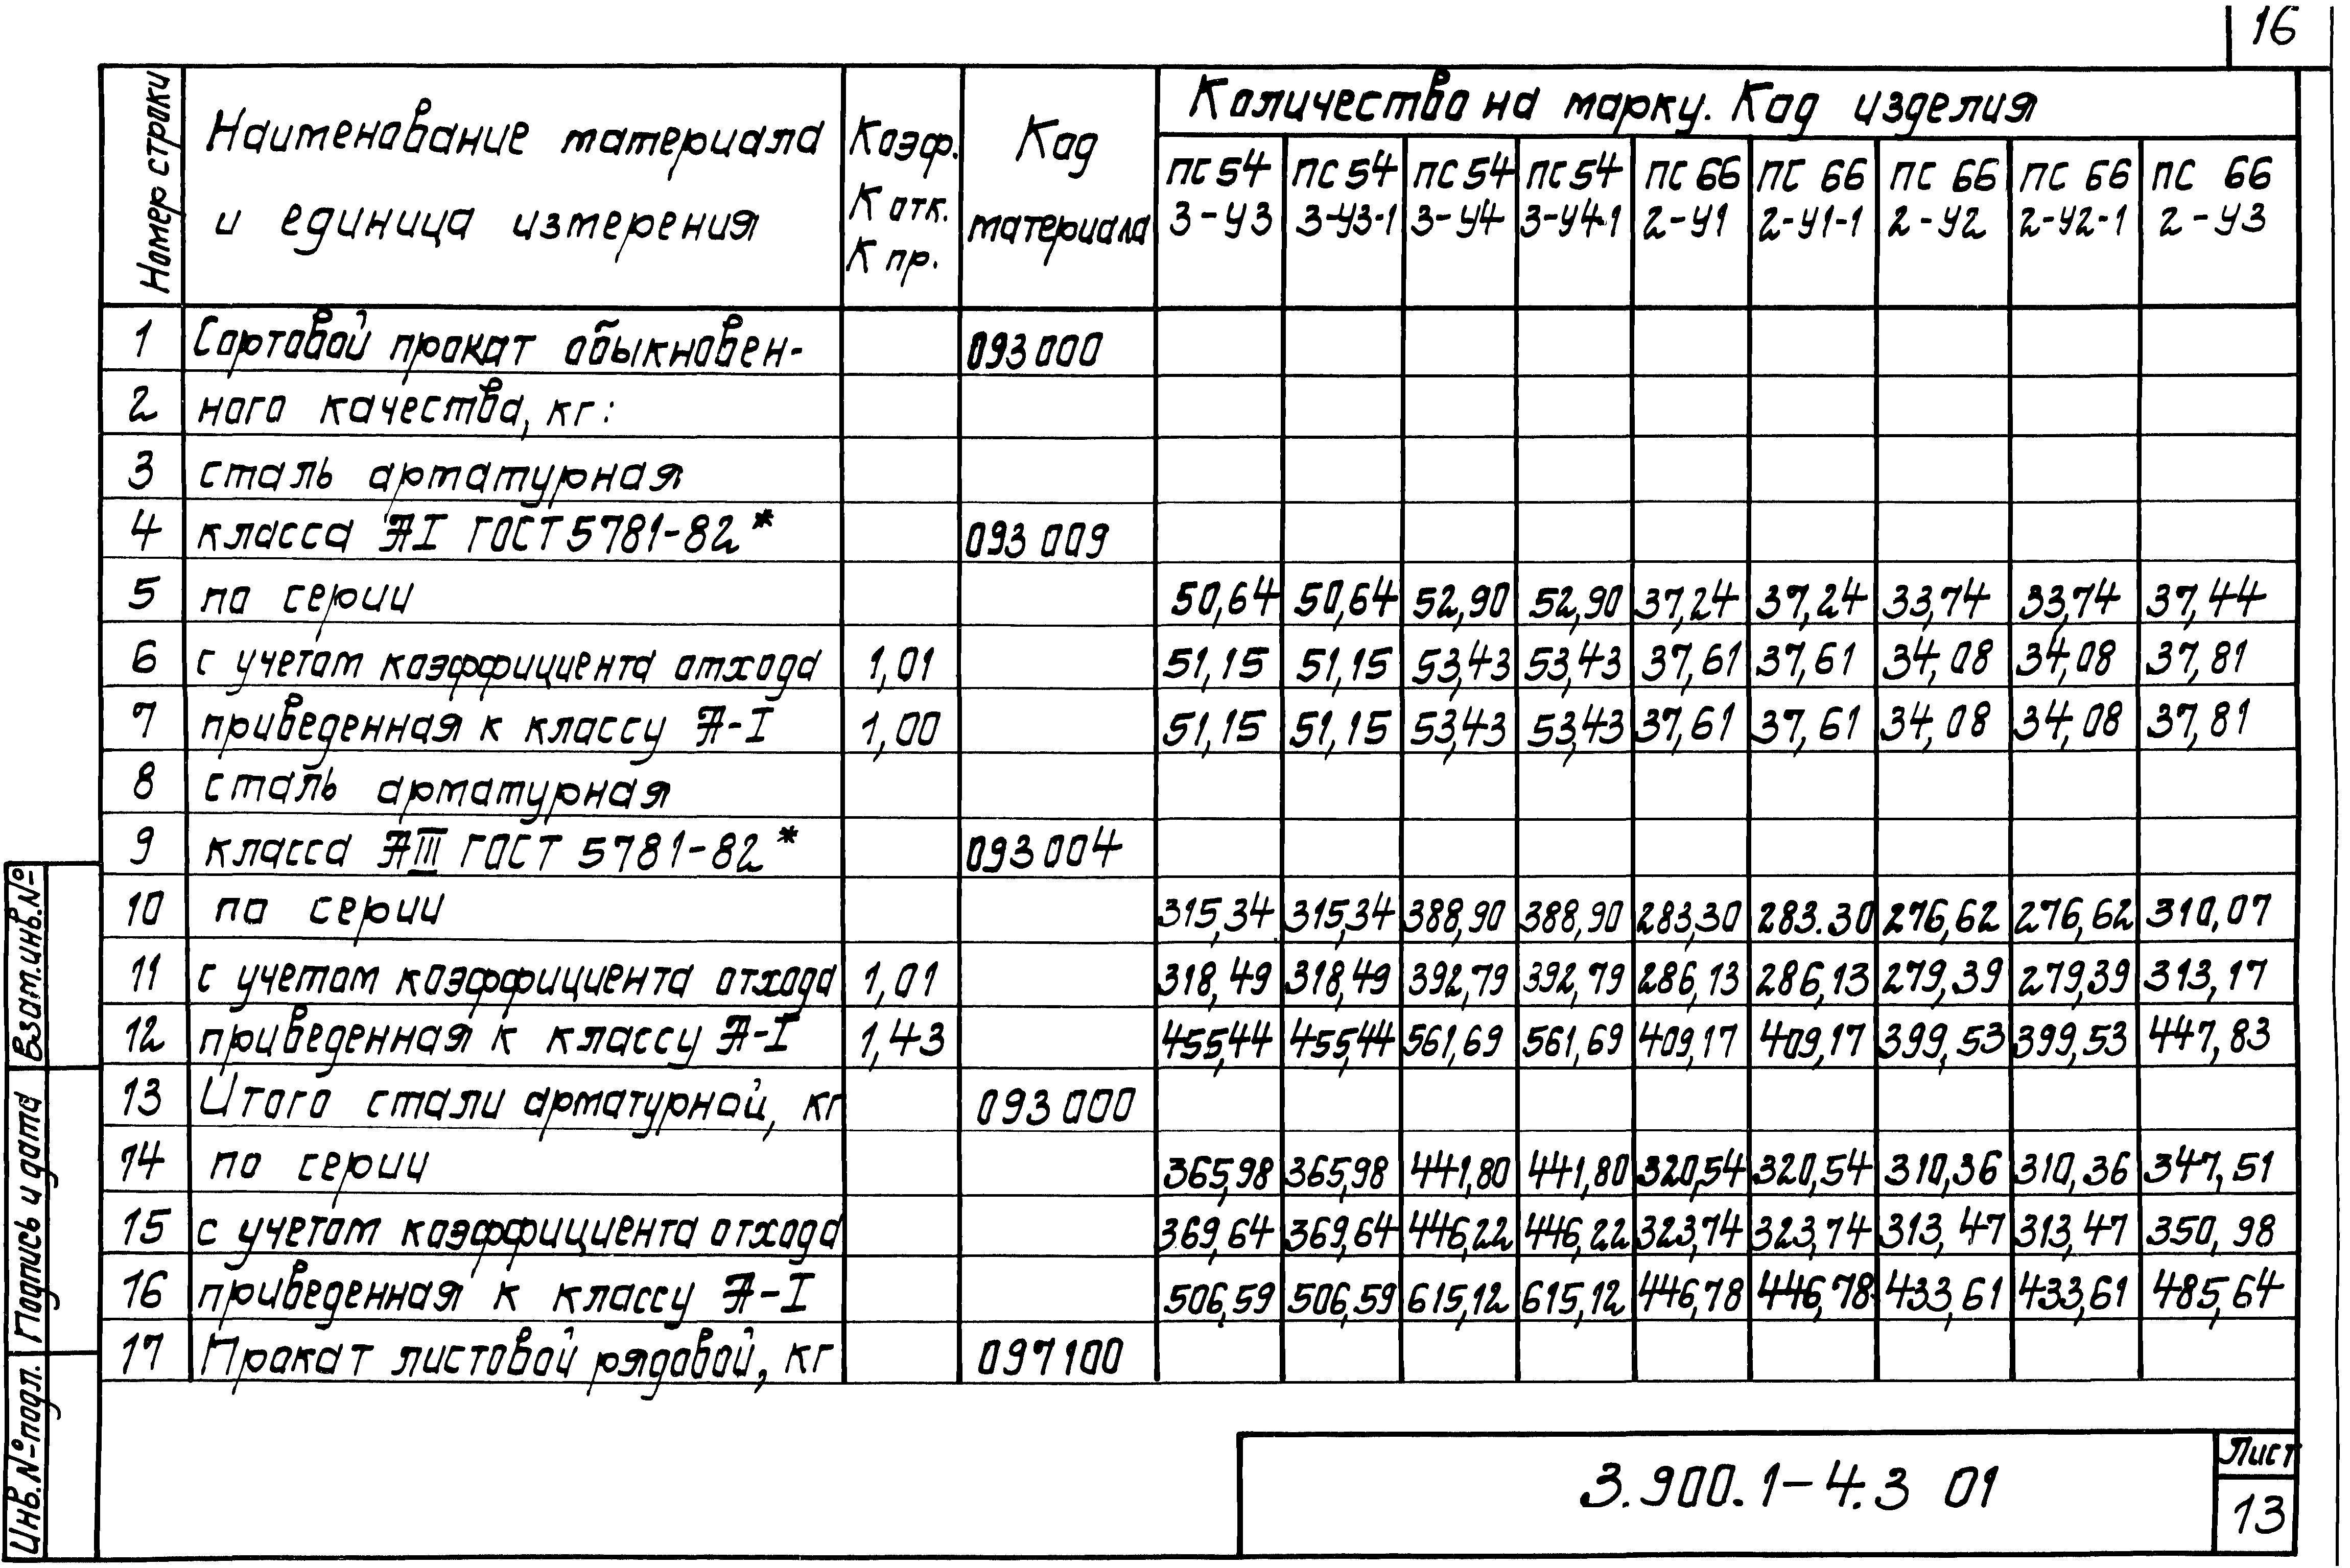 16
Номер строки
Наименование материала
и единица измерения
Коэф.
К отк.
К пр.
Код
материала
Количество на марку. Код изделия
ПС 54 ПС 54 ПС 54 ПС 54 ПС 66 ПС 66 ПС 66 ПС 66 ПС 66
3-У3 3-У3-1 3-У4 3-У4-1 2-У1 2-У1-1 2-У2 2-У2-1 2-У3
1 Сортовой прокат обыкновен- 093000
2 ного качества, кг:
3 сталь арматурная
4 класса АI ГОСТ 5781-82* 093009
5 по серии 50,64 50,64 52,90 52,90 37,24 37,24 33,74 33,74 37,44
6 с учетом коэффициента отхода 1,01 51,15 51,15 53,43 53,43 37,61 37,61 34,08 34,08 37,81
7 приведенная к классу А-I 1,00 51,15 51,15 53,43 53,43 37,61 37,61 34,08 34,08 37,81
8 сталь арматурная
9 класса АIII ГОСТ 5781-82* 093004
10 по серии 315,34 315,34 388,90 388,90 283,30 283.30 276,62 276,62 310,07
11 с учетом коэффициента отхода 1,01 318,49 318,49 392,79 392,79 286,13 286,13 279,39 279,39 313,17
12 приведенная к классу А-I 1,43 455,44 455,44 561,69 561,69 409,17 409,17 399,53 399,53 447,83
13 Итого стали арматурной, кг 093000
14 по серии 365,98 365,98 441,80 441,80 320,54 320,54 310,36 310,36 347,51
15 с учетом коэффициента отхода 369,64 369,64 446,22 446,22 323,74 323,74 313,47 313,47 350,98
16 приведенная к классу А-I 506,59 506,59 615,12 615,12 446,78 446,78 433,61 433,61 485,64
17 Прокат листовой рядовой, кг 097100
Взам.инв.№
Подпись и дата
Инв.№ подл.
3.900.1-4.3 01
Лист
13